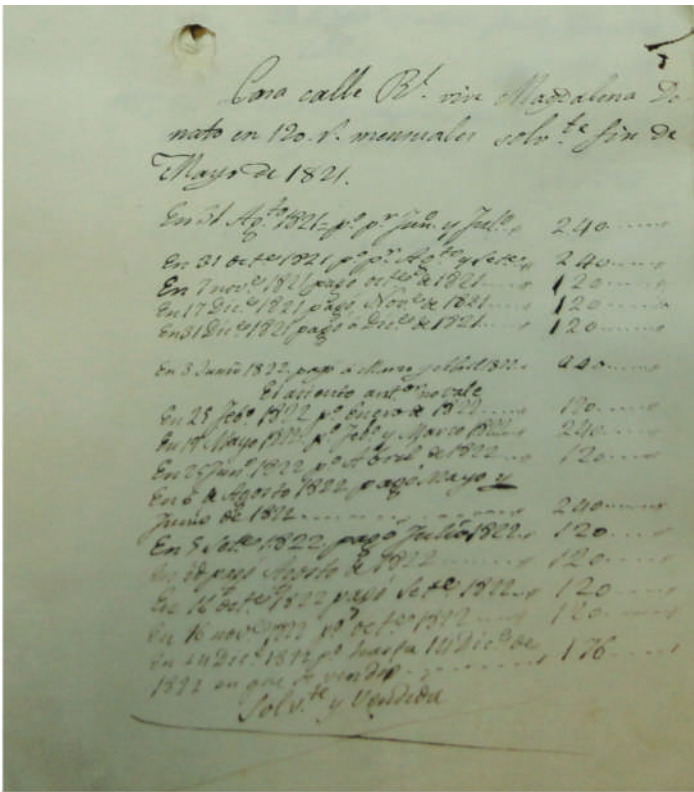 Casa calle Rl. vive Magdalena Do
nato en 120 r. mensuales solv.te fin de
Mayo de 1821.
En 31 Ag.to 1821 = p.o p.r Jun.o y Jul.o 240
En 31 oct.e 1821 p.o p.r Ag.to y Set.e 240
En 7 nov.e 1821 pagó oct.e de 1821 120
En 17 Dic.e 1821 pagó Nov.e de 1821 120
En 31 Dic.e 1821 pagó a Dic.e de 1821 120
En 3 Junio 1822 pagó a y Abril 1822 240
El asiento ant.or no vale
En 25 Feb.o 1822 p.o Enero de 1822 120
En 14 Mayo 1822 p.o Feb.o y Marzo 1822 240
En 25 Jun.o 1822 p.o Abril de 1822 120
En 6 de Agosto 1822 pagó Mayo y
Junio de 1822 240
En 5 Set.e 1822 pagó Julio 1822 120
pagó Agosto de 1822 120
En 12 oct.e 1822 pagó Set.e 1822 120
En 16 nov.e 1822 p.o oct.e 1822 120
En Dic.e 1822 p.o hasta 14 Dic.e de
1822 en que se vendió 176
Solv.te y Vendida